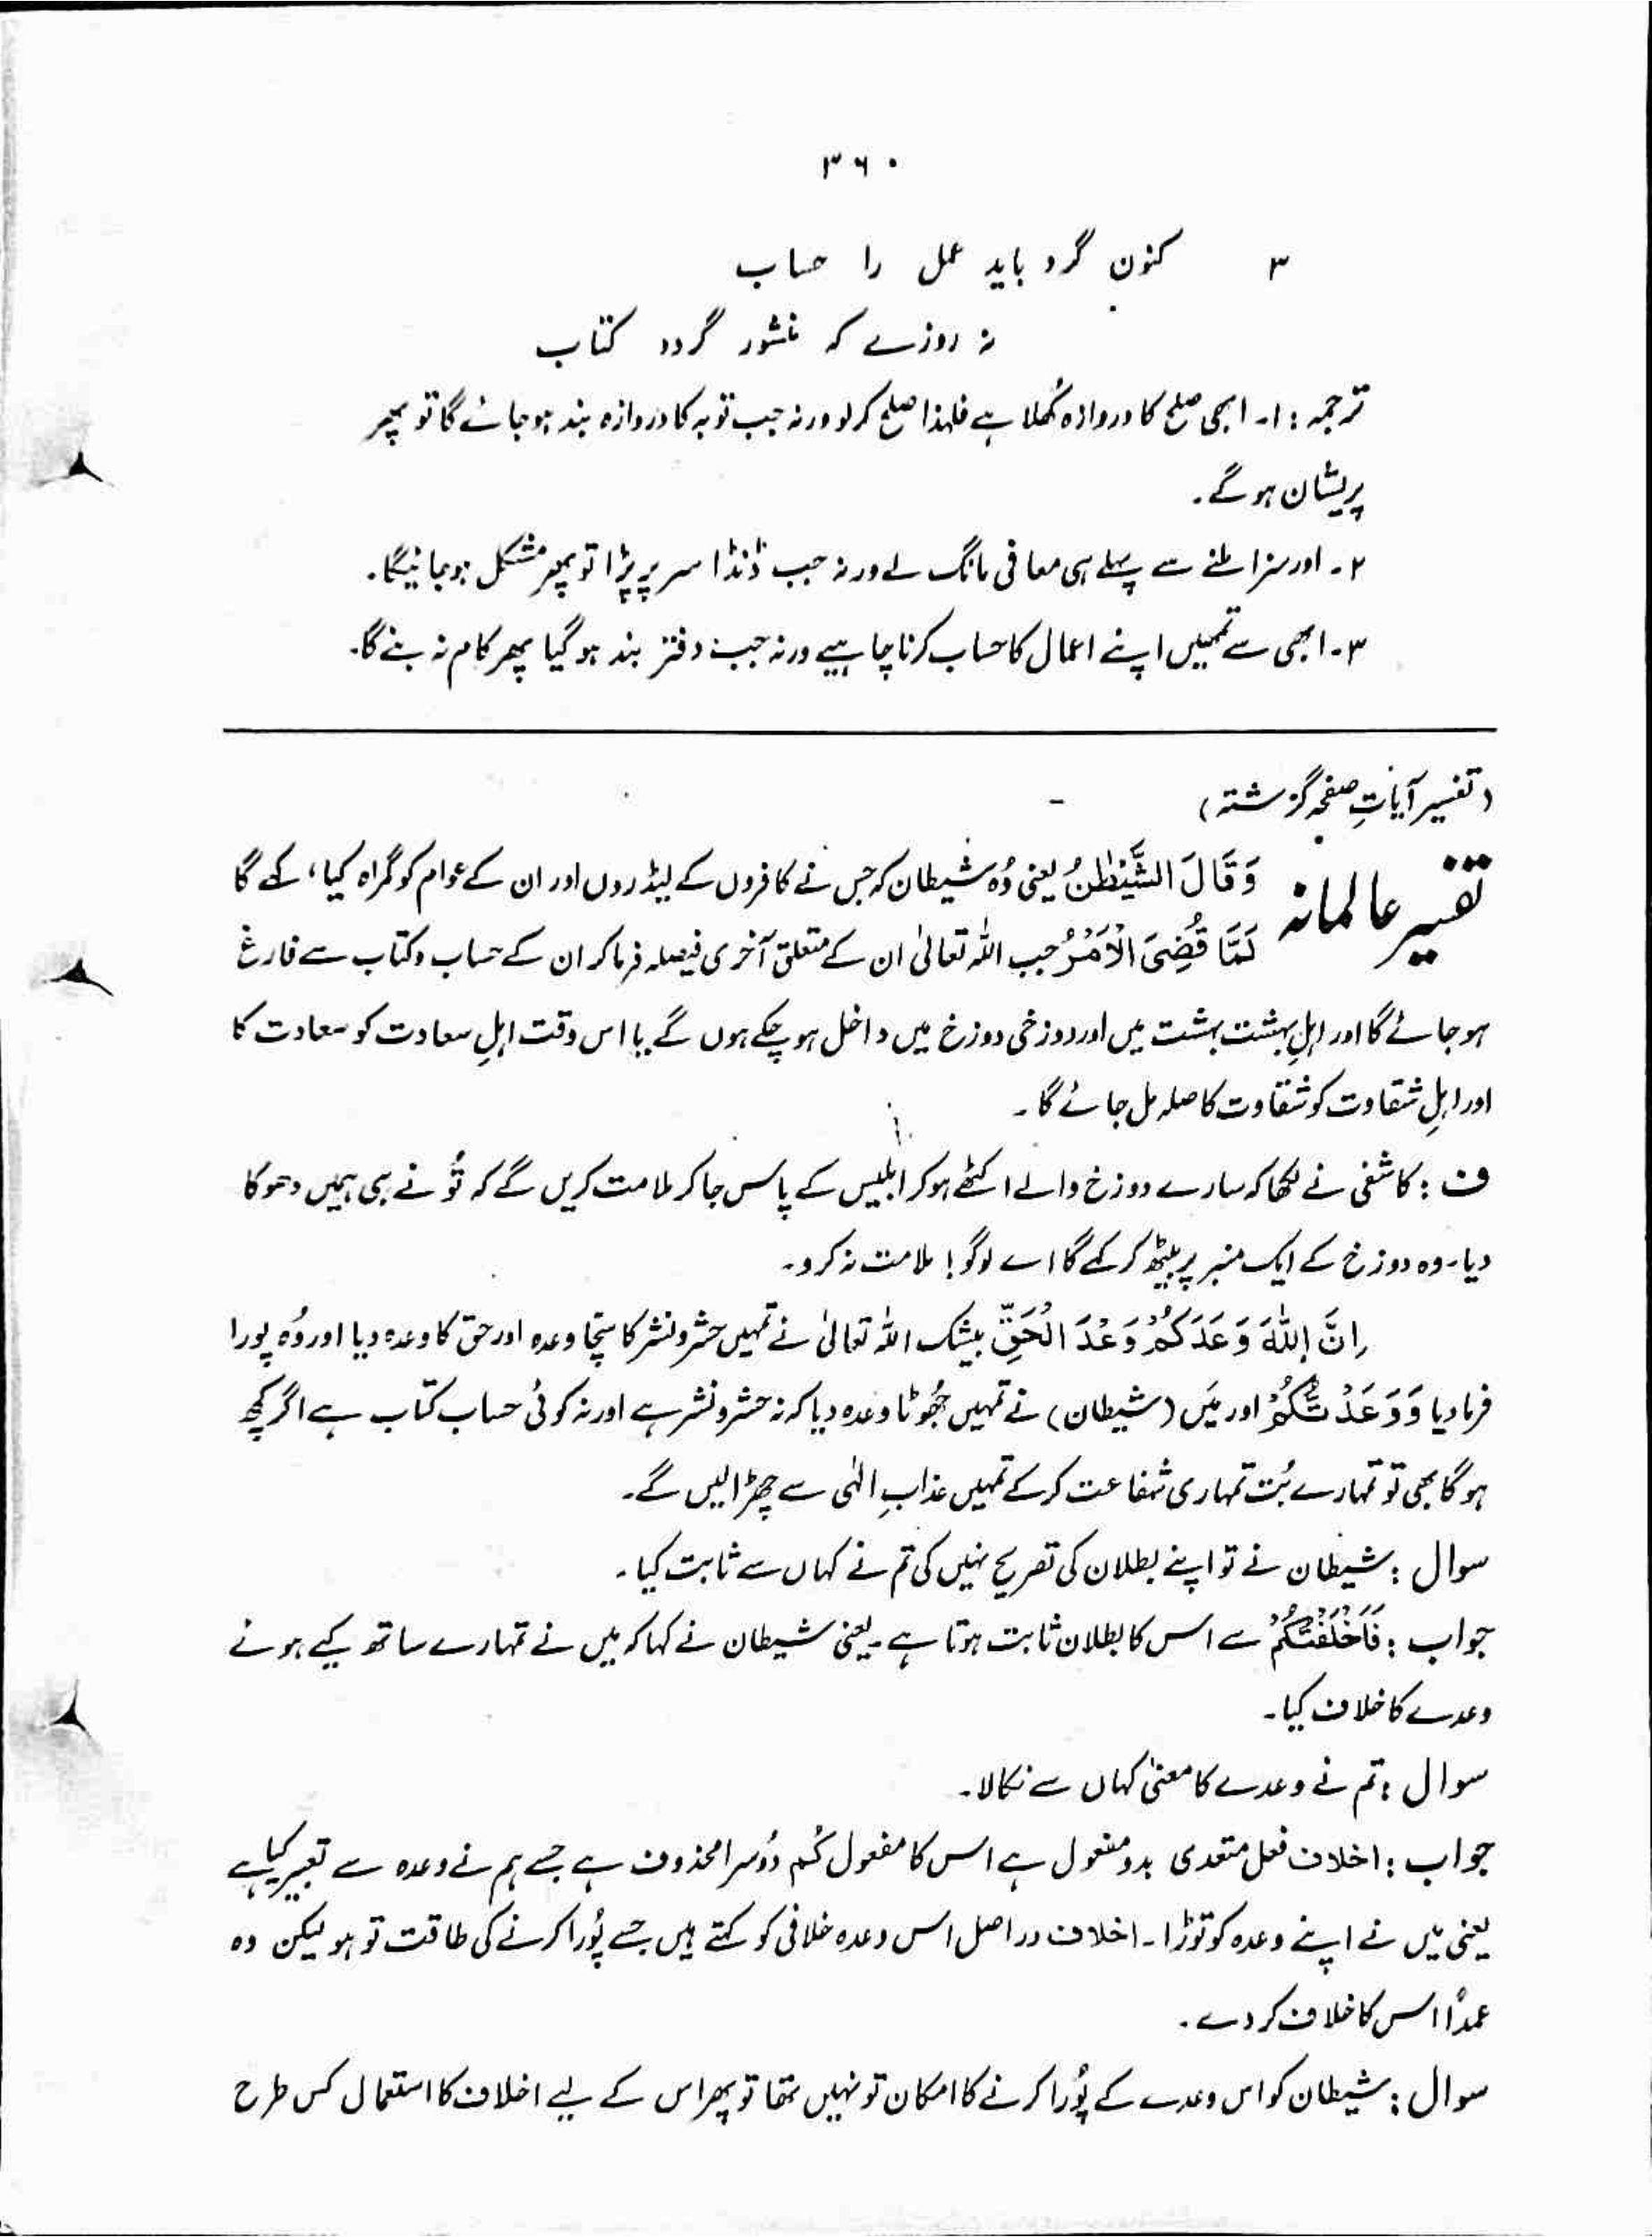 ۳۶۰
۳ کنون گرد باید عمل را حساب
نہ روزے کہ منشور گردد کتاب
ترجمہ : ۱۔ ابھی صلح کا دروازہ کُھلا ہے فلہذا صلح کرلو ورنہ جب توبہ کا دروازہ بند ہوجائے گا تو پھر
پریشان ہوگے۔
۲۔ اور سزا ملنے سے پہلے ہی معافی مانگ لے ورنہ جب ڈنڈا سر پر پڑا تو پھر مشکل ہوجائیگا۔
۳۔ ابھی سے تمہیں اپنے اعمال کا حساب کرنا چاہیے ورنہ جب دفتر بند ہوگیا پھر کام نہ بنے گا۔
(تفسیر آیاتِ صفحہ گزشتہ)
تفسیر عالمانہ وَقَالَ الشَّیْطٰنُ یعنی وُہ شیطان کہ جس نے کافروں کے لیڈروں اور ان کے عوام کو گمراہ کیا، کہے گا
لَمَّا قُضِیَ الْاَمْرُ جب اللہ تعالیٰ ان کے متعلق آخری فیصلہ فرما کر ان کے حساب و کتاب سے فارغ
ہوجائے گا اور اہلِ بہشت بہشت میں اور دوزخی دوزخ میں داخل ہوچکے ہوں گے یا اس وقت اہلِ سعادت کو سعادت کا
اور اہلِ شقاوت کو شقاوت کا صلہ مل جائے گا۔
ف : کاشفی نے لکھا کہ سارے دوزخ والے اکٹھے ہوکر ابلیس کے پاس جاکر ملامت کریں گے کہ تُو نے ہی ہمیں دھوکا
دیا۔ وہ دوزخ کے ایک منبر پر بیٹھ کر کہے گا اے لوگو! ملامت نہ کرو۔
اِنَّ اللّٰهَ وَعَدَكُمْ وَعْدَ الْحَقِّ بیشک اللہ تعالیٰ نے تمہیں حشر و نشر کا سچّا وعدہ اور حق کا وعدہ دیا اور وُہ پورا
فرمادیا وَوَعَدْتُّكُمْ اور مَیں (شیطان) نے تمہیں جُھوٹا وعدہ دیا کہ نہ حشر و نشر ہے اور نہ کوئی حساب کتاب ہے اگر کچھ
ہوگا بھی تو تمہارے بُت تمہاری شفاعت کرکے تمہیں عذابِ الٰہی سے چھڑالیں گے۔
سوال : شیطان نے تو اپنے بطلان کی تصریح نہیں کی تم نے کہاں سے ثابت کیا۔
جواب : فَاَخْلَفْتُكُمْ سے اس کا بطلان ثابت ہوتا ہے۔ یعنی شیطان نے کہا کہ میں نے تمہارے ساتھ کیے ہوئے
وعدے کا خلاف کیا۔
سوال : تم نے وعدے کا معنیٰ کہاں سے نکالا۔
جواب : اخلاف فعل متعدی بدو مفعول ہے اس کا مفعول کُم دُوسرا محذوف ہے جسے ہم نے وعدہ سے تعبیر کیا ہے
یعنی میں نے اپنے وعدہ کو توڑا۔ اخلاف دراصل اس وعدہ خلافی کو کہتے ہیں جسے پُورا کرنے کی طاقت تو ہو لیکن وہ
عمداً اس کا خلاف کردے۔
سوال : شیطان کو اس وعدے کے پُورا کرنے کا امکان تو نہیں تھا تو پھر اس کے لیے اخلاف کا استعمال کس طرح